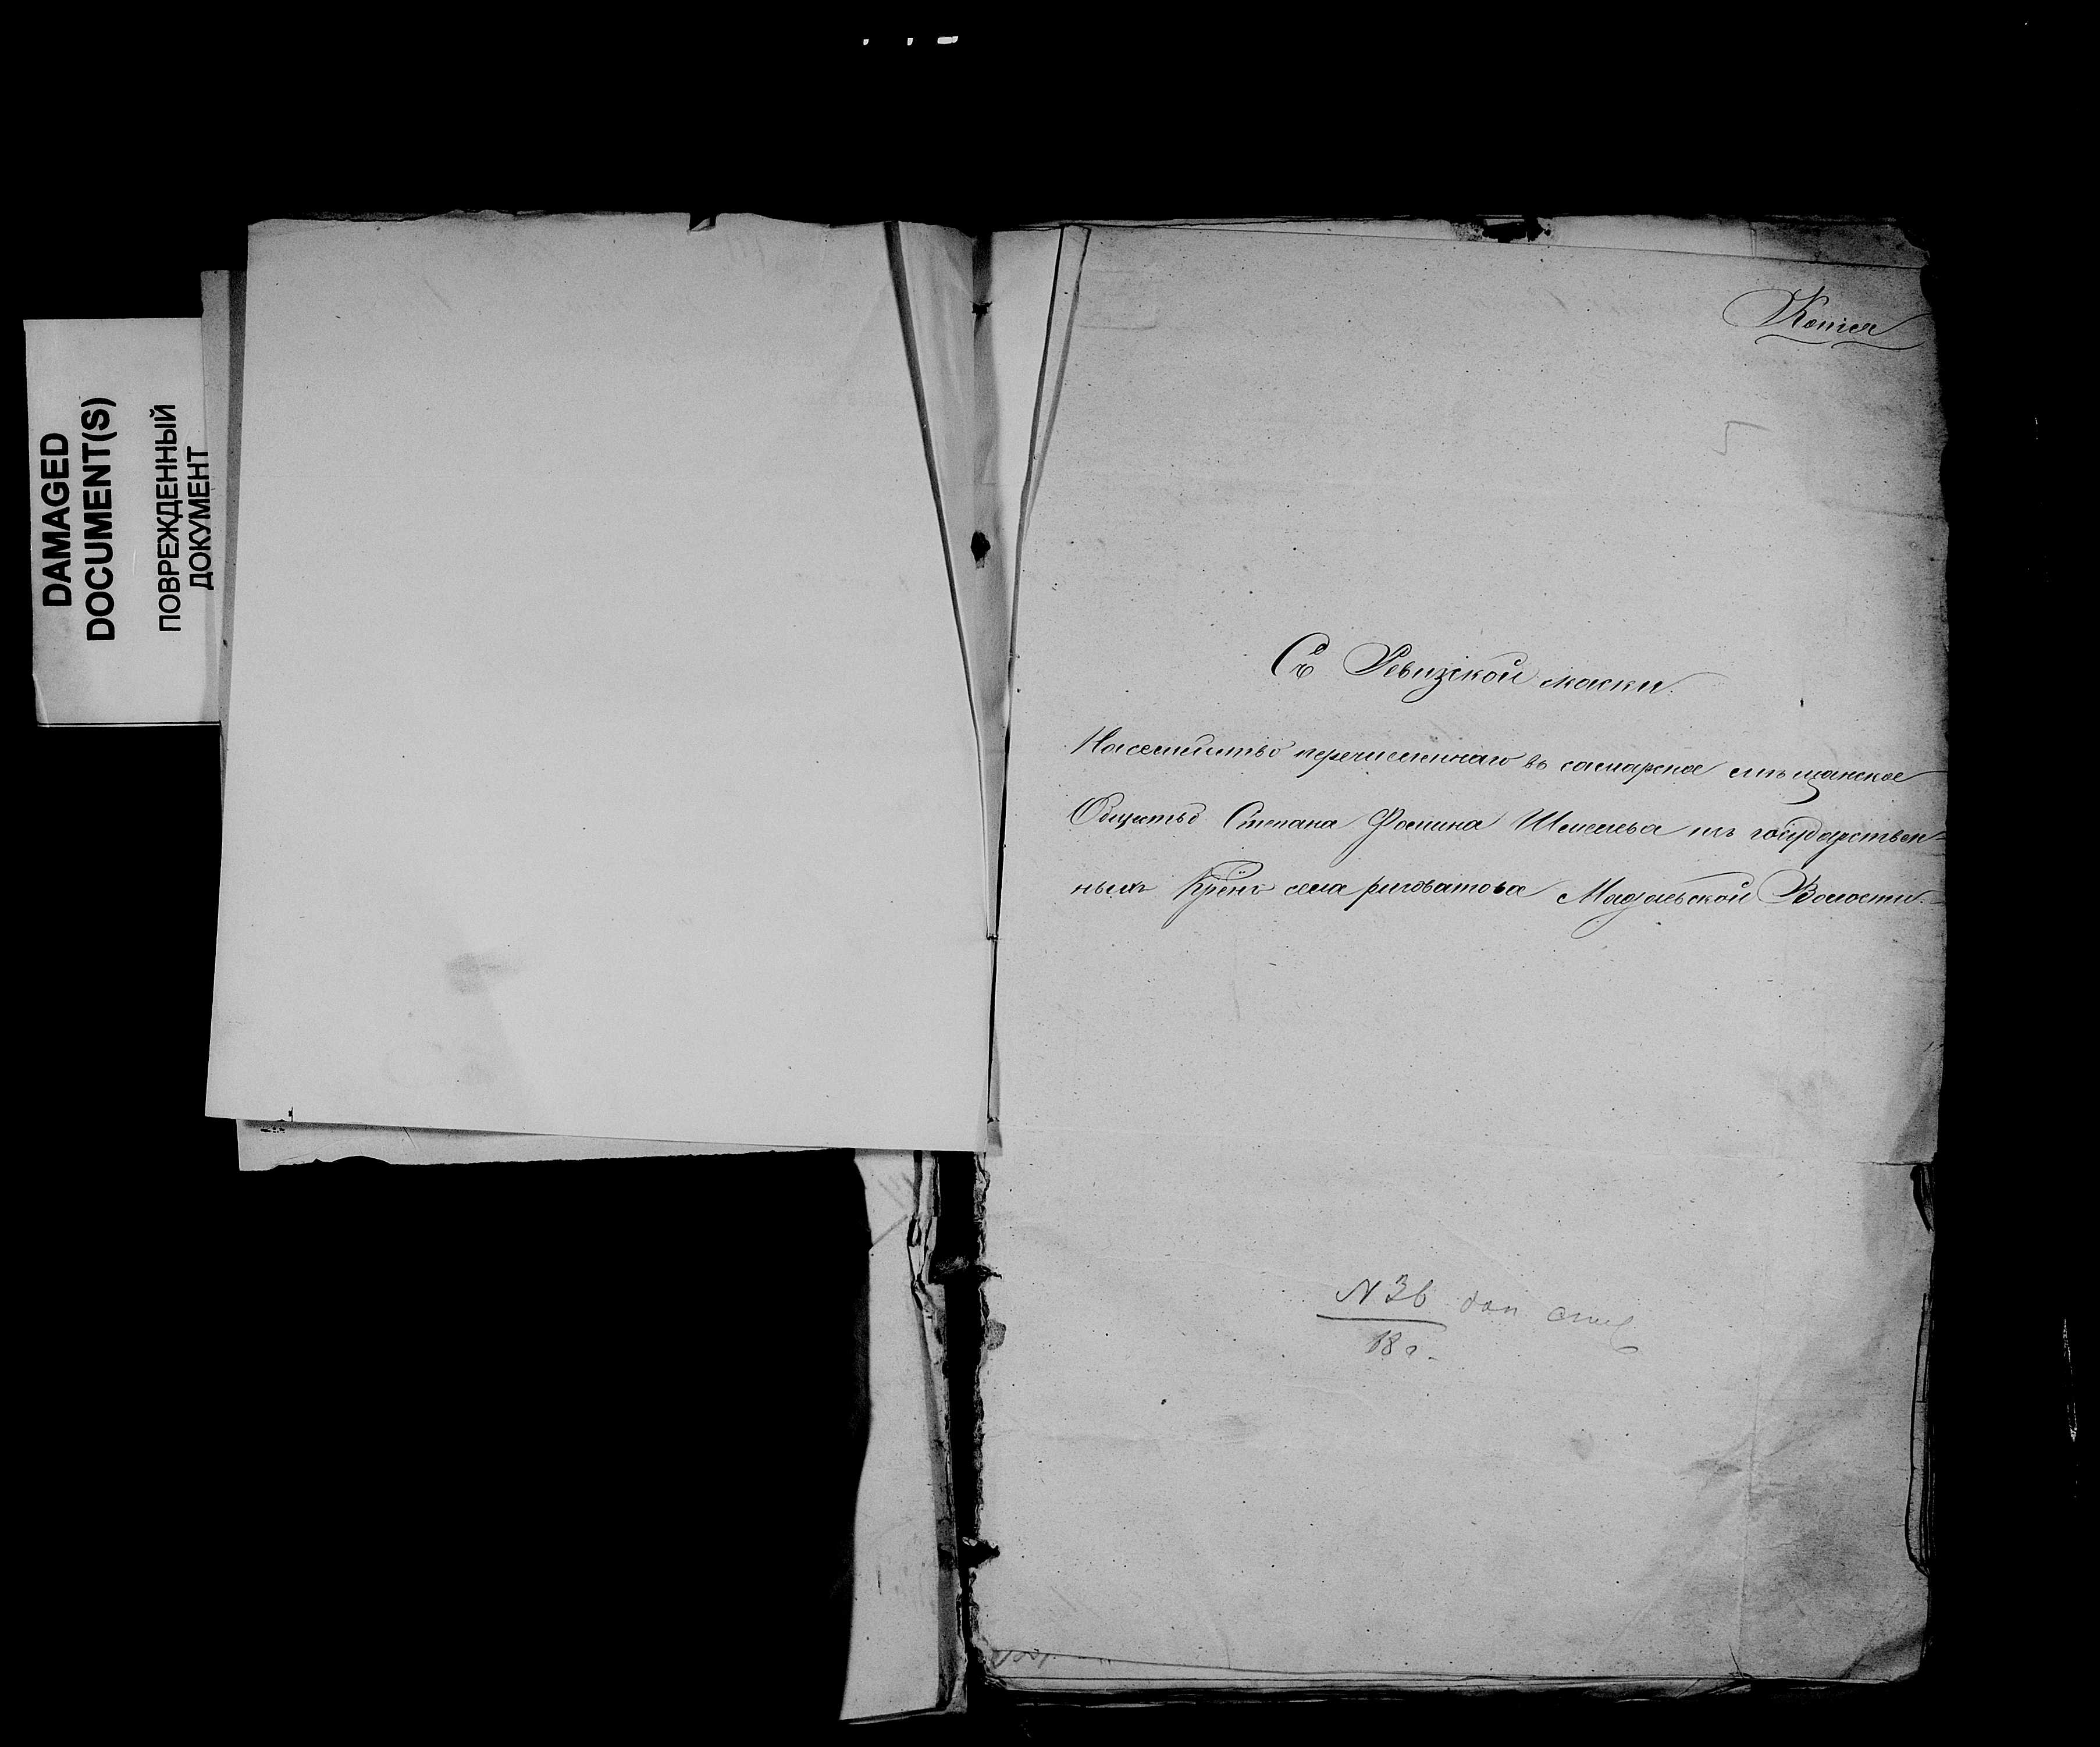 DAMAGED
DOCUMENT(S)
ПОВРЕЖДЕННЫЙ
ДОКУМЕНТ
Копия
5
Съ Ревизской скаски.
На семейство перечисленнаго въ самарское мѣщанское
Общество Степана Фомина Шмелева изъ государствен-
ныхъ Крѣнъ села Волости.
N 36 доп